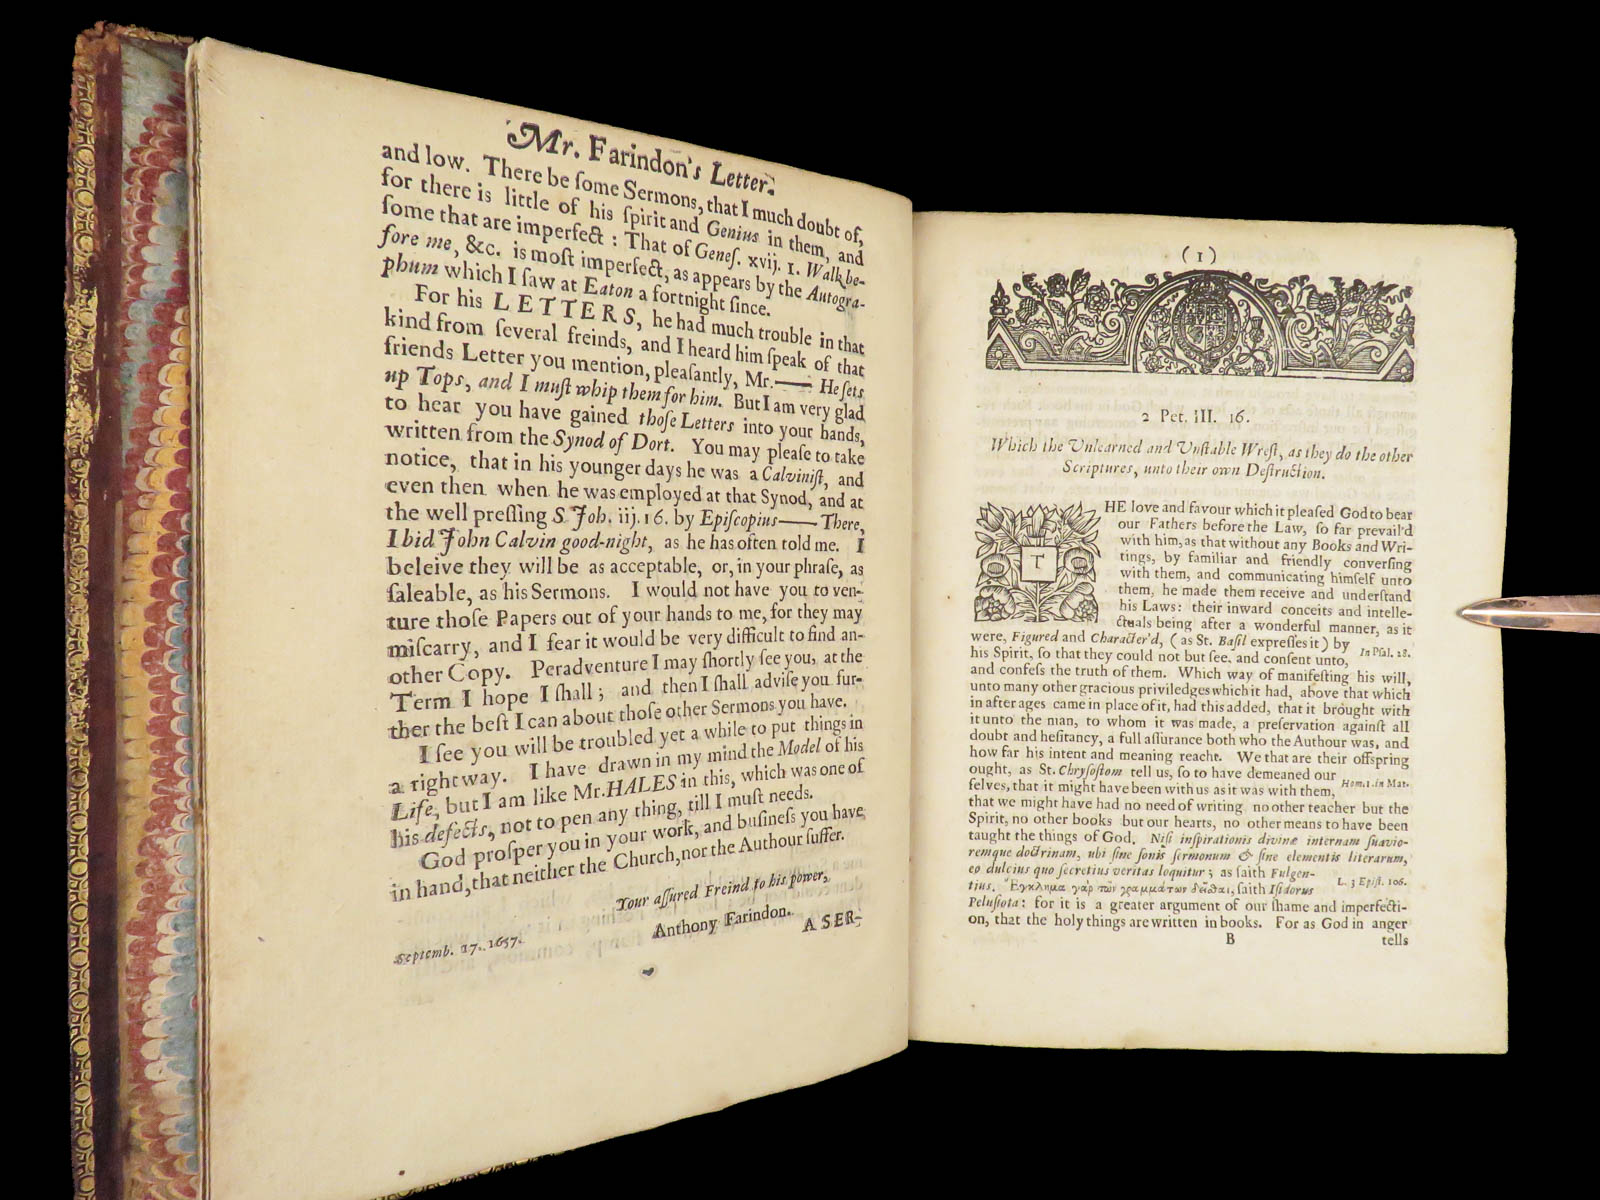 Mr. Farindon's Letter.
and low. There be ſome Sermons, that I much doubt of,
for there is little of his ſpirit and Genius in them, and
ſome that are imperfect : That of Geneſ. xvij. 1. Walk be-
fore me, &c. is moſt imperfect, as appears by the Autogra-
phum which I ſaw at Eaton a fortnight ſince.
For his LETTERS, he had much trouble in that
kind from ſeveral freinds, and I heard him ſpeak of that
friends Letter you mention, pleaſantly, Mr.—— He ſets
up Tops, and I muſt whip them for him. But I am very glad
to hear you have gained thoſe Letters into your hands,
written from the Synod of Dort. You may pleaſe to take
notice, that in his younger days he was a Calviniſt, and
even then when he was employed at that Synod, and at
the well preſſing S. Joh. iij. 16. by Epiſcopius—— There,
I bid John Calvin good-night, as he has often told me. I
beleive they will be as acceptable, or, in your phraſe, as
ſaleable, as his Sermons. I would not have you to ven-
ture thoſe Papers out of your hands to me, for they may
miſcarry, and I fear it would be very difficult to find an-
other Copy. Peradventure I may ſhortly ſee you, at the
Term I hope I ſhall ; and then I ſhall adviſe you fur-
ther the beſt I can about thoſe other Sermons you have.
I ſee you will be troubled yet a while to put things in
a right way. I have drawn in my mind the Model of his
Life, but I am like Mr. HALES in this, which was one of
his defects, not to pen any thing, till I muſt needs.
God proſper you in your work, and buſineſs you have
in hand, that neither the Church, nor the Authour ſuffer.
Your aſſured Freind to his power,
Anthony Farindon.
Septemb. 17. 1657.
A SER-
( 1 )
2 Pet. III. 16.
Which the Unlearned and Unſtable Wreſt, as they do the other
Scriptures, unto their own Deſtruction.
THE love and favour which it pleaſed God to bear
our Fathers before the Law, ſo far prevail'd
with him, as that without any Books and Wri-
tings, by familiar and friendly converſing
with them, and communicating himſelf unto
them, he made them receive and underſtand
his Laws: their inward conceits and intelle-
ctuals being after a wonderful manner, as it
were, Figured and Character'd, ( as St. Baſil expreſſes it ) by
In Pſal. 28.
his Spirit, ſo that they could not but ſee, and conſent unto,
and confeſs the truth of them. Which way of manifeſting his will,
unto many other gracious priviledges which it had, above that which
in after ages came in place of it, had this added, that it brought with
it unto the man, to whom it was made, a preſervation againſt all
doubt and heſitancy, a full aſſurance both who the Authour was, and
how far his intent and meaning reacht. We that are their offspring
ought, as St. Chryſoſtom tell us, ſo to have demeaned our
Hom. 1. in Mat.
ſelves, that it might have been with us as it was with them,
that we might have had no need of writing, no other teacher but the
Spirit, no other books but our hearts, no other means to have been
taught the things of God. Niſi inſpirationis divinæ internam ſuavio-
remque doctrinam, ubi ſine ſonis ſermonum & ſine elementis literarum,
eo dulcius quo ſecretius veritas loquitur ; as ſaith Fulgen-
L. 3 Epiſt. 106.
tius. Ἔγκλημα γὰρ τῶν γραμμάτων δεῖσθαι, ſaith Iſidorus
Peluſiota : for it is a greater argument of our ſhame and imperfecti-
on, that the holy things are written in books. For as God in anger
B
tells